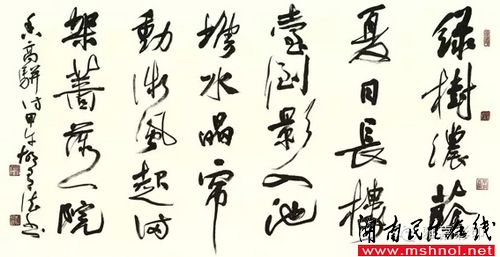 綠樹濃蔭
夏日長樓
臺倒影入池
塘水晶帘
動微風起滿
架薔薇一院
香高駢詩甲午書
湖南民生在线
www.mshnol.net